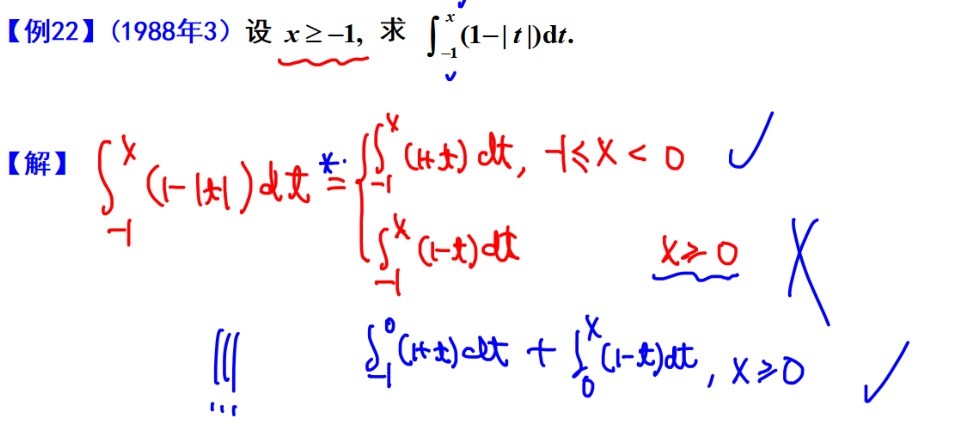 【例22】(1988年3) 设 x ≥ −1, 求 ∫_{−1}^{x} (1−| t |)dt.
【解】 ∫_{-1}^{x} (1-|t|)dt = { ∫_{-1}^{x} (1+t) dt, -1≤x<0 ✓
∫_{-1}^{x} (1-t)dt x≥0 ✗
!!! ∫_{-1}^{0} (1+t)dt + ∫_{0}^{x} (1-t)dt, x≥0 ✓